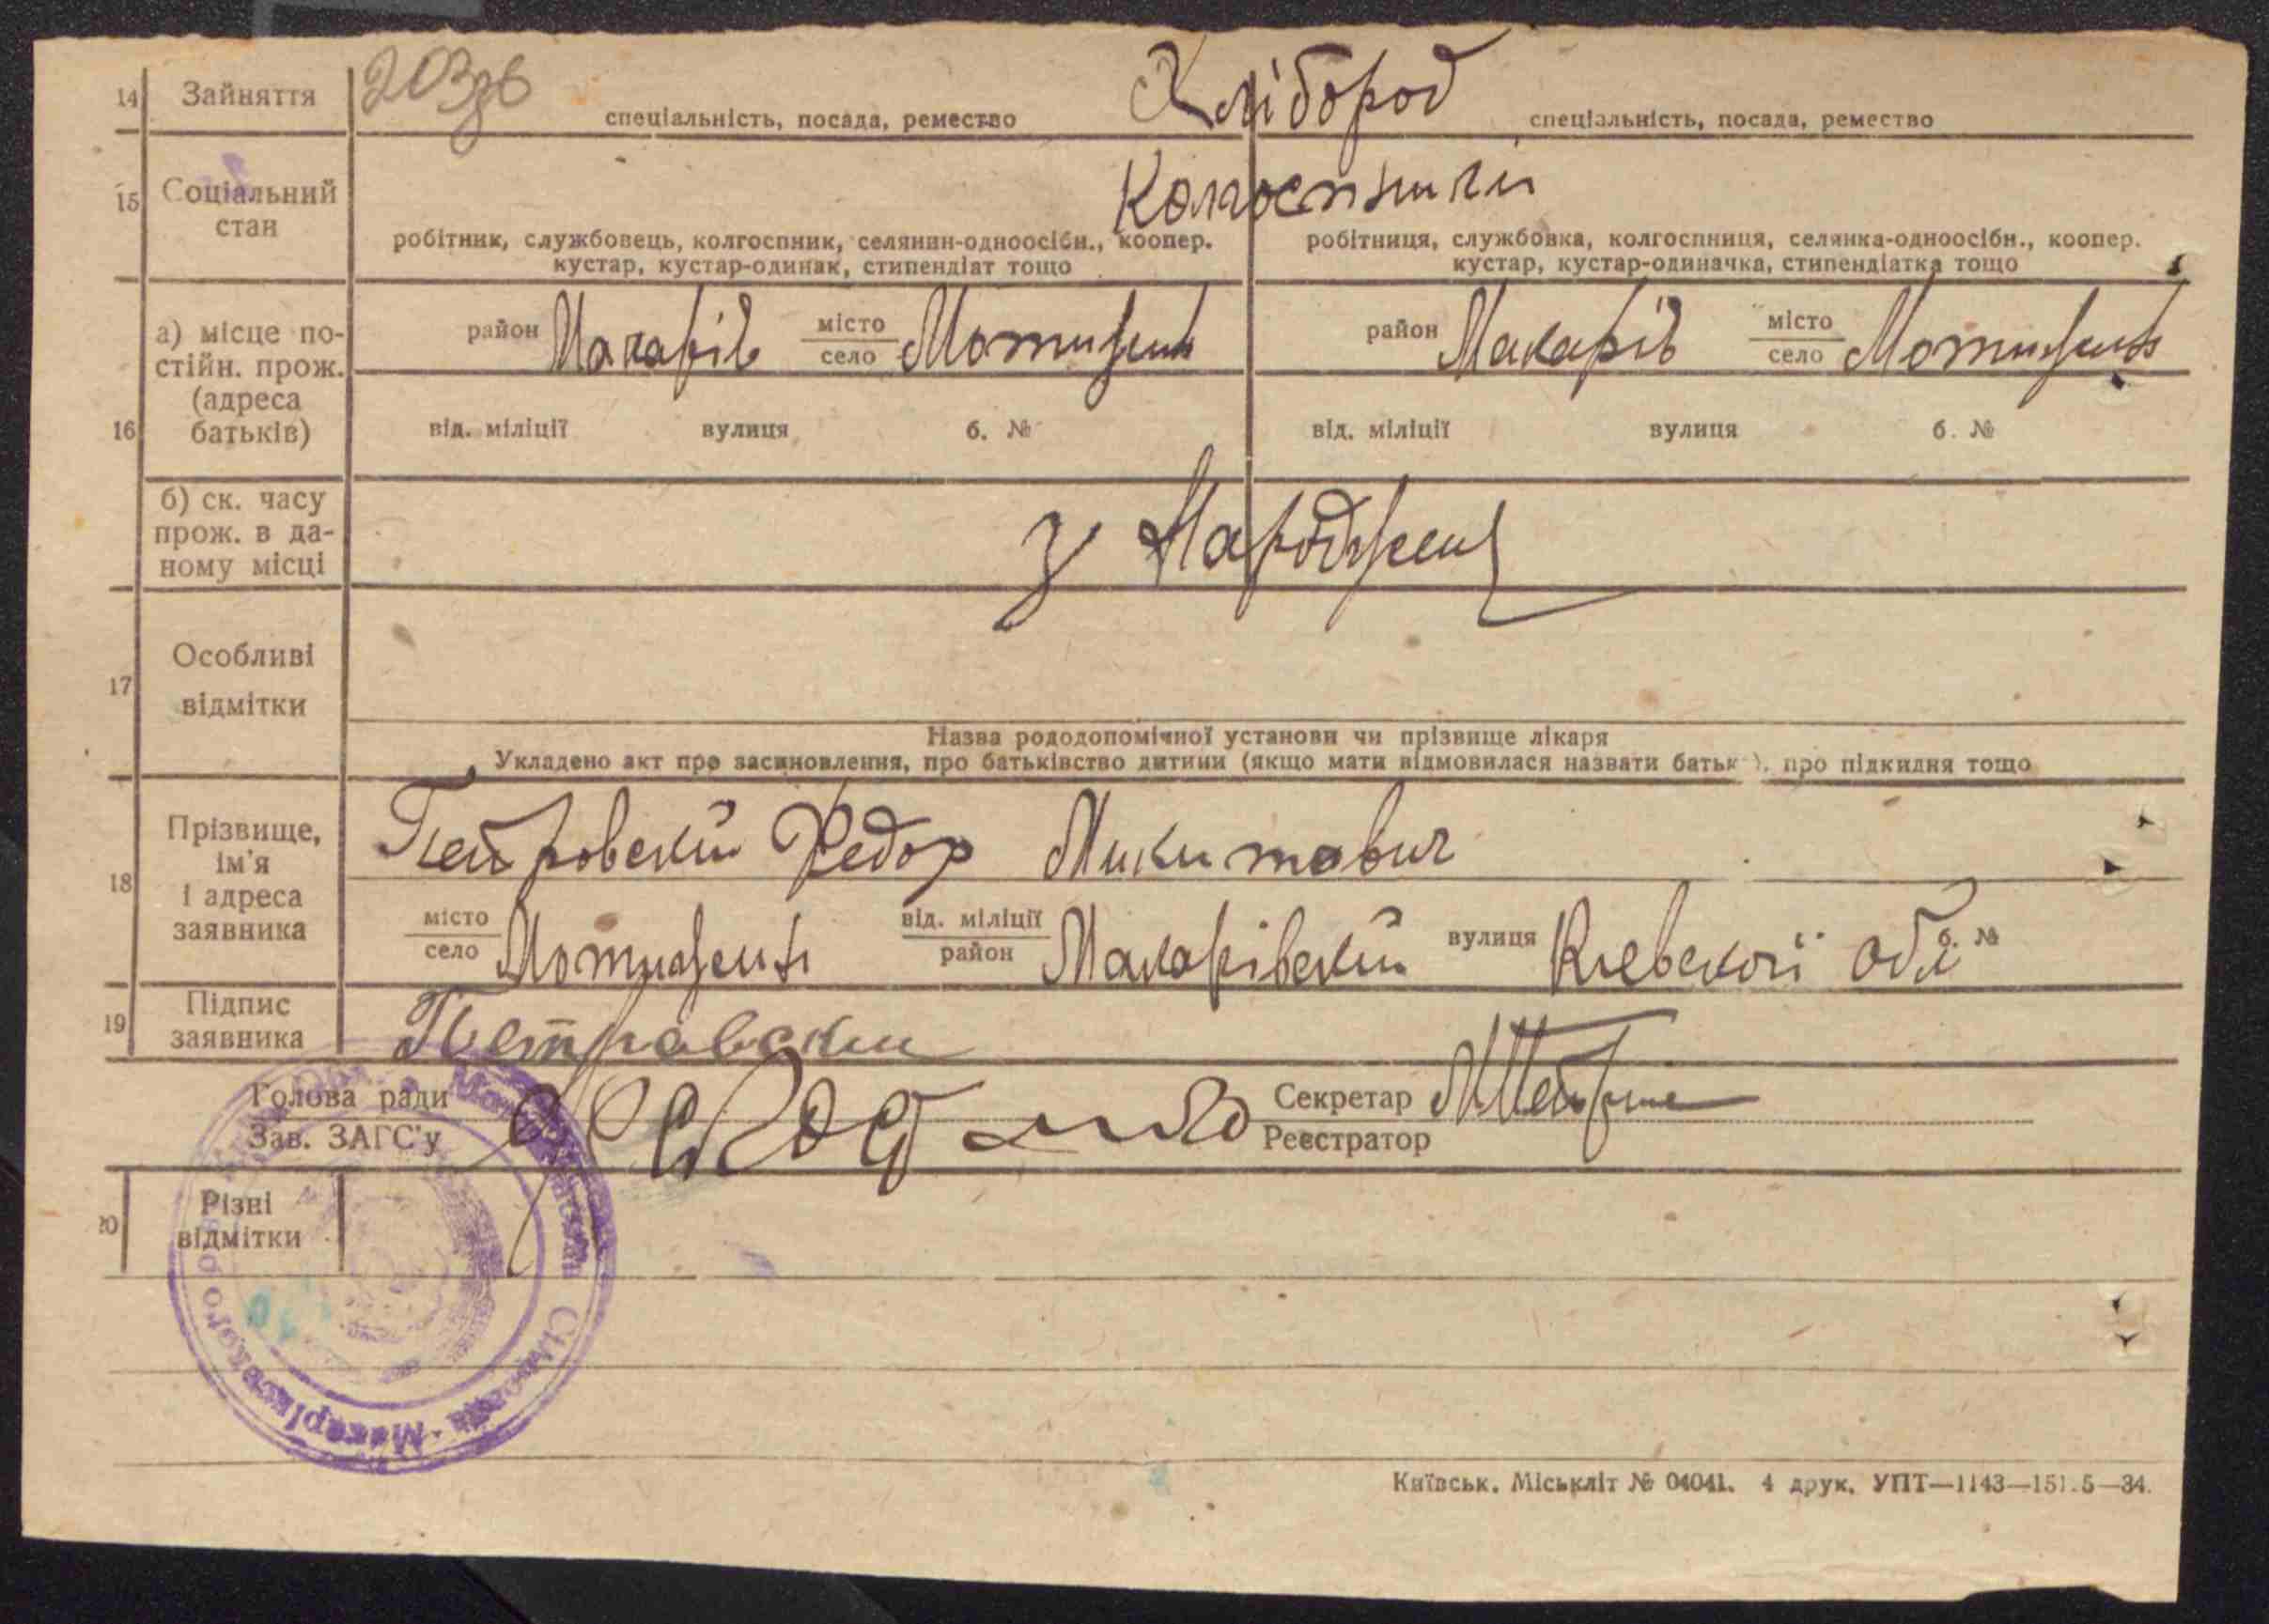 14 Зайняття 203зв Хлібород
спеціальність, посада, ремество спеціальність, посада, ремество
15 Соціальний стан Колгоспники
робітник, службовець, колгоспник, селянин-одноосібн., коопер. робітниця, службовка, колгоспниця, селянка-одноосібн., коопер.
кустар, кустар-одинак, стипендіат тощо кустар, кустар-одиначка, стипендіатка тощо
16 а) місце по-
стійн. прож.
(адреса
батьків)
район Макарів місто село Мотижин район Макарів місто село Мотижин
від. міліції вулиця б. № від. міліції вулиця б. №
б) ск. часу
прож. в да-
ному місці
з Народжен
17 Особливі
відмітки
Назва рододопомічної установи чи прізвище лікаря
Укладено акт про засиновлення, про батьківство дитини (якщо мати відмовилася назвати батьк ), про підкидня тощо
18 Прізвище,
ім'я
і адреса
заявника
Петровский Федор Микитович
місто село Мотижин від. міліції район Макарівский вулиця Киевскої обл б. №
19 Підпис
заявника
Петравски
Голова ради Секретар
Зав. ЗАГС'у Реєстратор
20 Різні
відмітки
Сільрада Макарівського
Київськ. Міськліт № 04041. 4 друк. УПТ—1143—151.5—34.